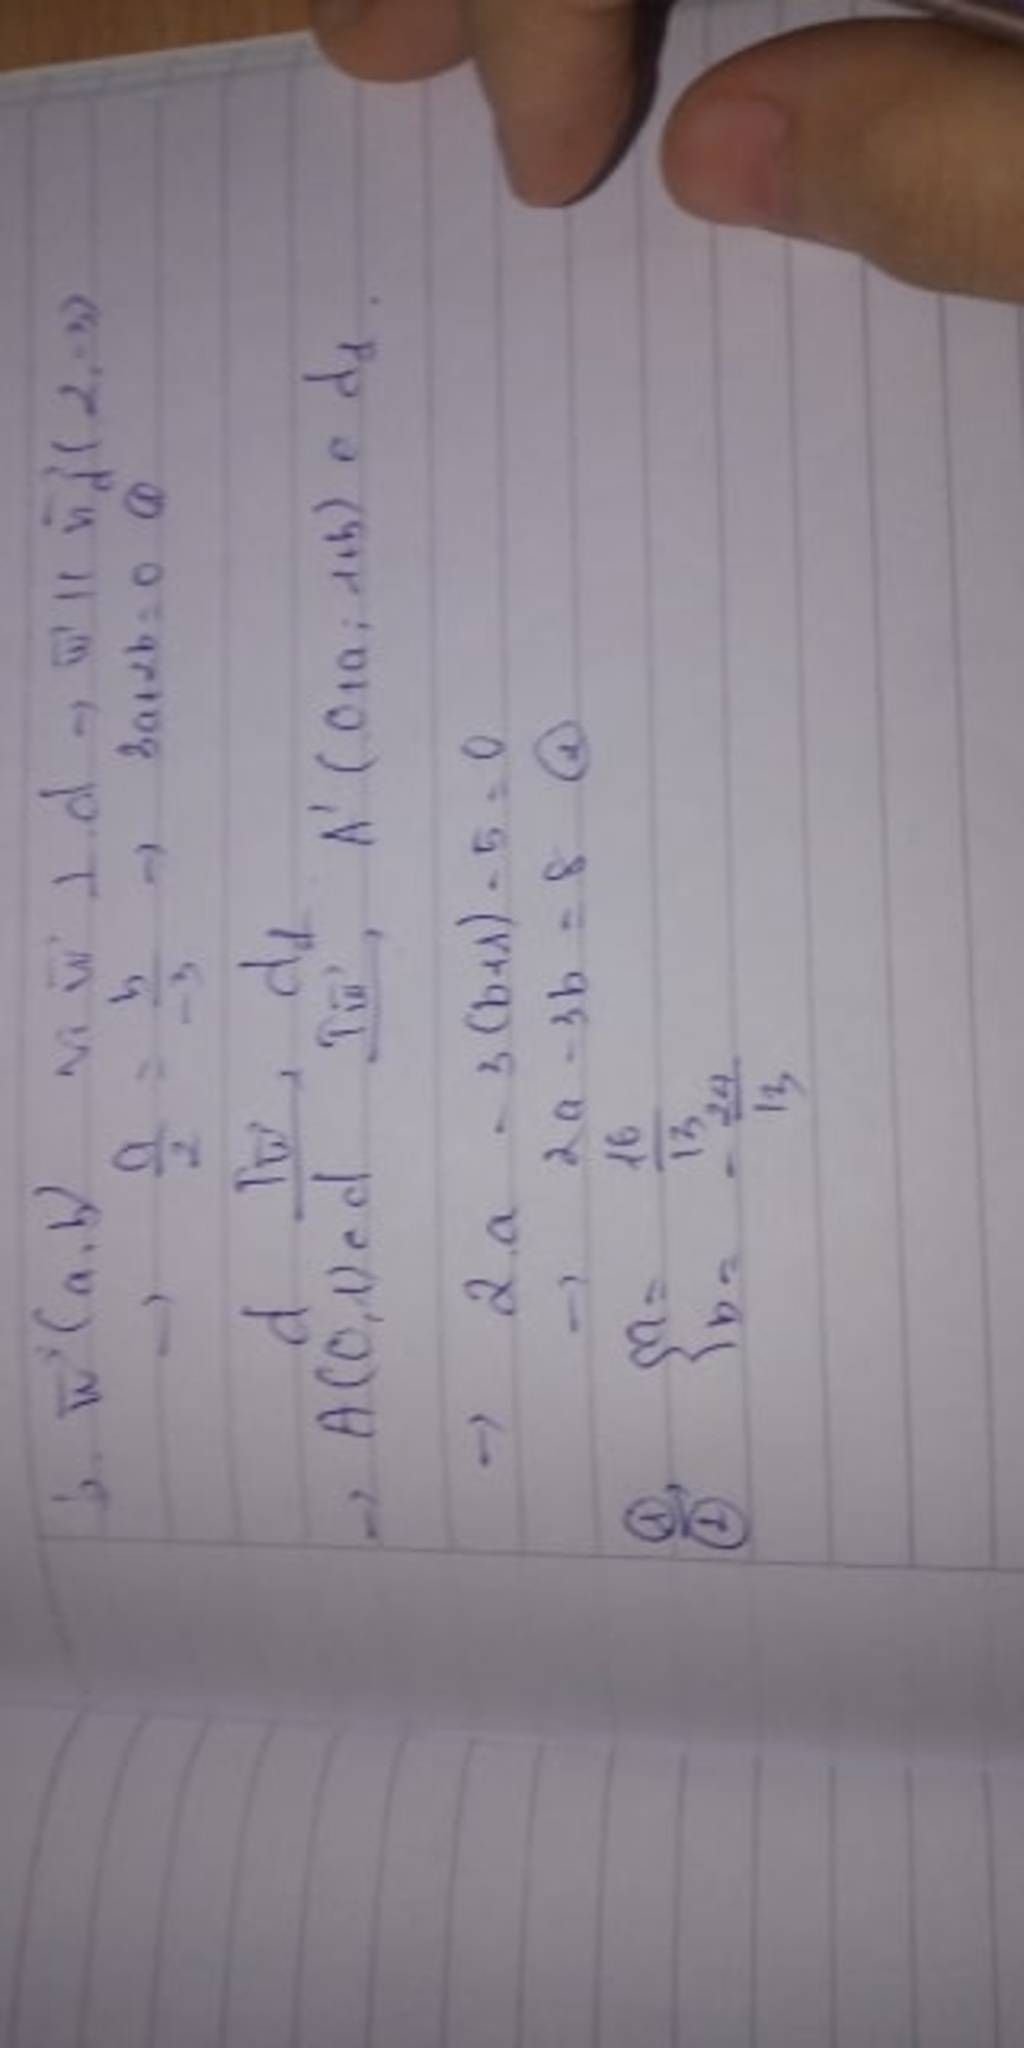 b. w⃗ (a,b) vì w⃗ ⊥ d → w⃗ || n⃗d (2,-3)
→ a/2 = b/-3 → 3a+2b=0 ①
d —Tw⃗→ d₁
→ A(0,1) ∈ d —Tw⃗→ A'(0+a; 1+b) ∈ d₁.
→ 2.a - 3(b+1) - 5 = 0
→ 2a - 3b = 8 ②
①, ② { a = 16/13
b = -24/13